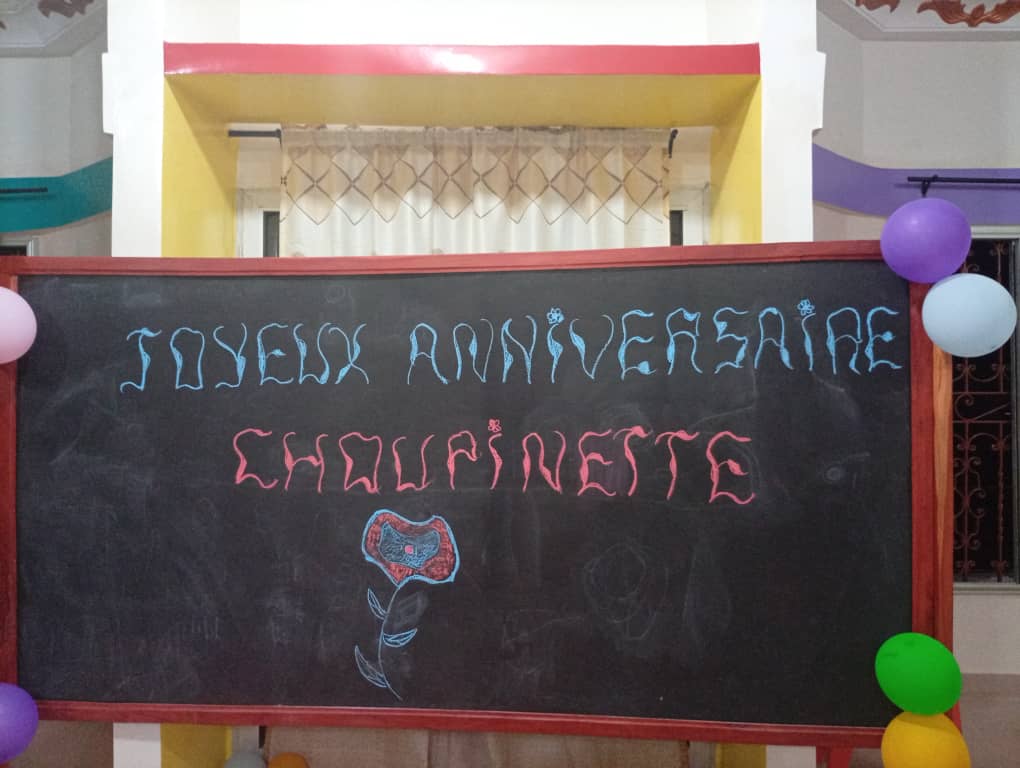 JOYEUX ANNiVERSAiRE
CHOUPiNETTE